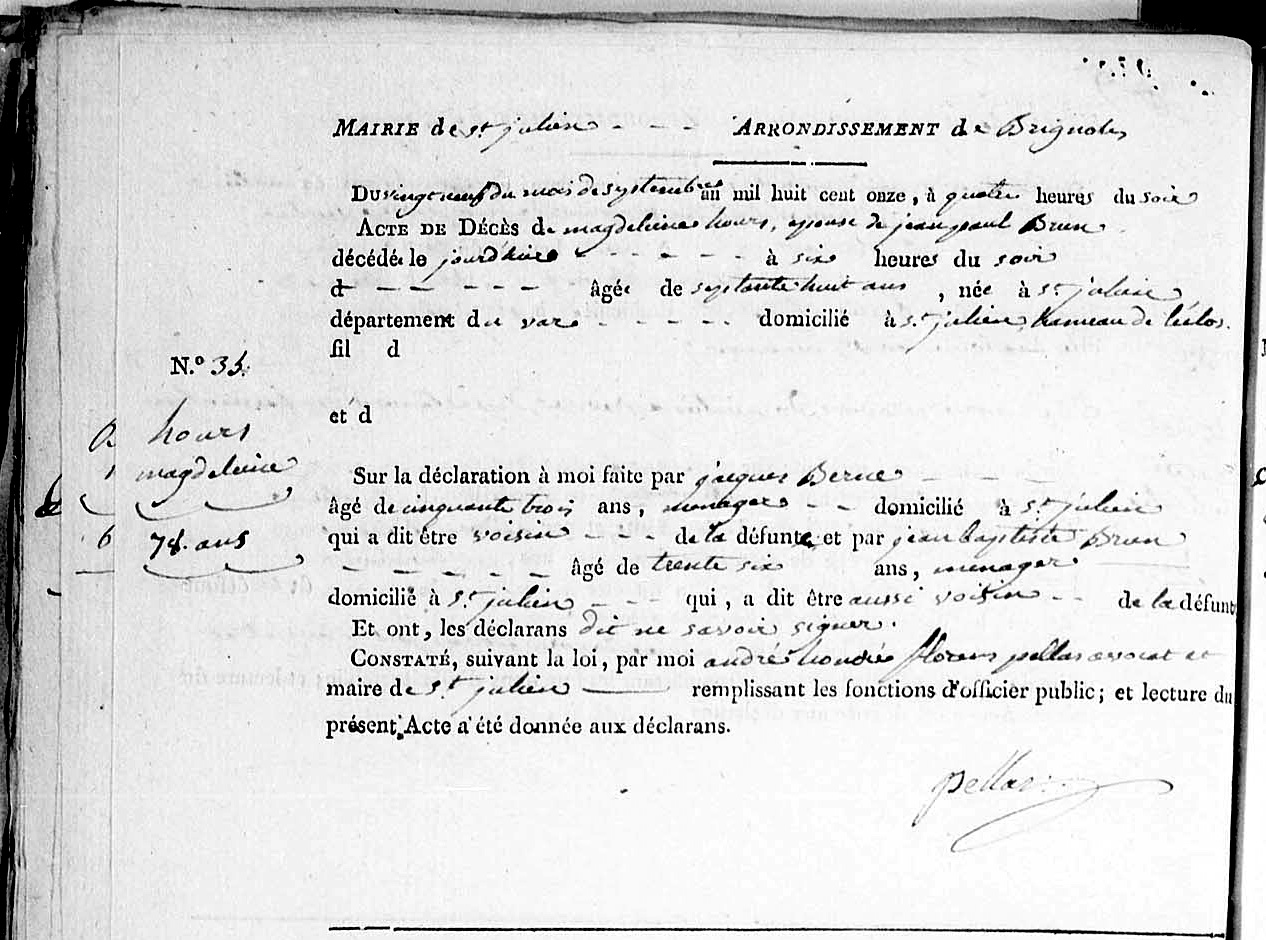 MAIRIE de St julien - - - ARRONDISSEMENT de Brignoles
Du vingt neuf du mois de septembre an mil huit cent onze, à quatre heures du soir
ACTE DE DÉCÈS de magdeleine hours, epouse de jean paul Brun
décédée le jourd'hui - - - - - - à six heures du soir
d - - - - - - âgée de septante huit ans, née à St julien
département du var - - - - - domicilié à St julien, hameau de
fil d
N.º 35.
et d
hours
magdeleine
78. ans
Sur la déclaration à moi faite par jacques Berne - - - -
âgé de cinquante trois ans, menager - - domicilié à St julien
qui a dit être voisin - - - de la défunte et par jean baptiste Brun
- - - - - - âgé de trente six ans, menager
domicilié à St julien - - - qui, a dit être aussi voisin - - de la défunt
Et ont, les déclarans dit ne savoir signer.
CONSTATÉ, suivant la loi, par moi andré honoré florens pellas avocat et
maire de St julien ——— remplissant les fonctions d'officier public; et lecture du
présent Acte a été donnée aux déclarans.
pellas